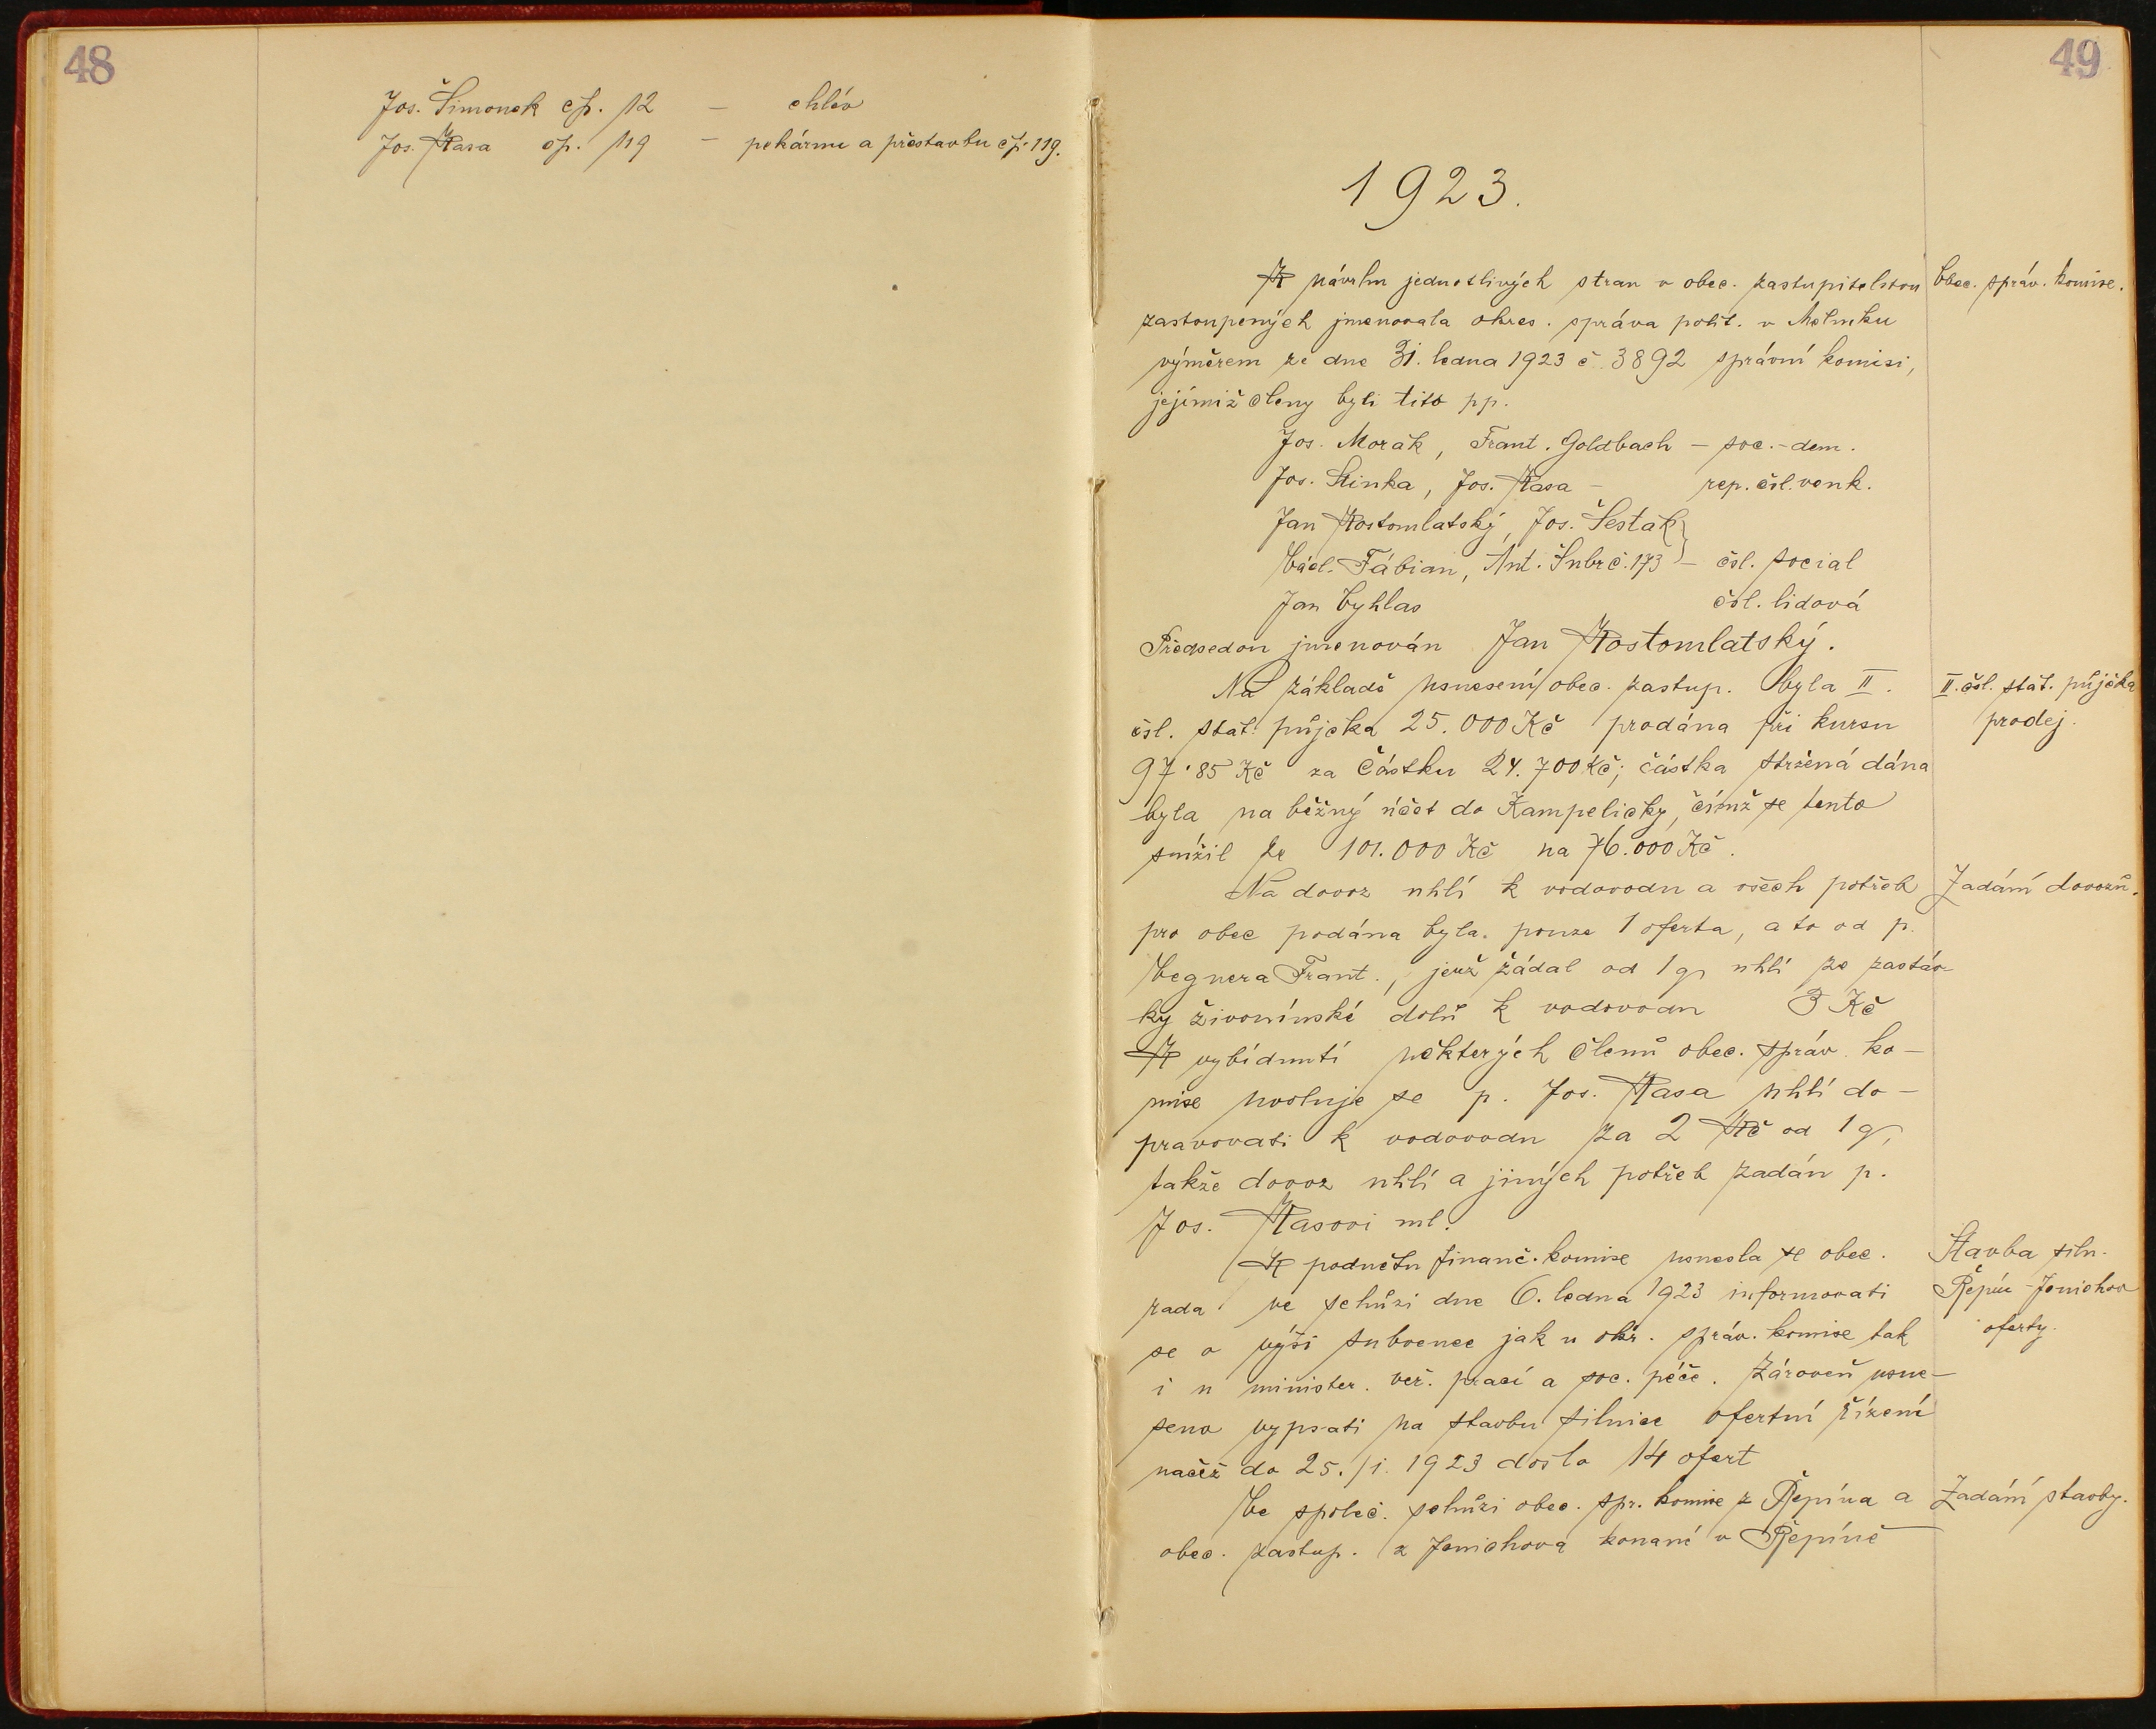 48
Jos. Šimonek čp. 12 – chlév
Jos. Kasa čp. 119 – pekárnu a přestavbu čp. 119.
49
1923.
K návrhu jednotlivých stran v obec. zastupitelstvu
Obec. správ. komise.
zastoupených jmenovala okres. správa polit. v Mělníku
výměrem ze dne 31. ledna 1923 č. 3892 správní komisi,
jejímiž členy byli tito pp.
Jos. Morák, Frant. Goldbach – soc.-dem.
Jos. Stinka, Jos. Kasa – rep. čsl. venk.
Jan Kostomlatský, Jos. Šesták
Václ. Fábian, Ant. Šubr č. 173 – čsl. social
Jan Vyhlas čsl. lidová
Předsedou jmenován Jan Kostomlatský.
Na základě usnesení obec. zastup. byla II.
II. čsl. stát. půjčka
čsl. stát. půjčka 25.000 Kč prodána při kursu
prodej.
97·85 Kč za částku 24.700 Kč; částka stržená dána
byla na běžný účet do Kampeličky, čímž se tento
snížil ze 101.000 Kč na 76.000 Kč.
Na dovoz uhlí k vodovodu a všech potřeb
Zadání dovozů.
pro obec podána byla pouze 1 oferta, a to od p.
Vegnera Frant., jenž žádal od 1 q uhlí ze zastáv-
ky živonínské dolů k vodovodu 3 Kč
K vybídnutí některých členů obec. správ. ko-
mise uvoluje se p. Jos. Kasa uhlí do-
pravovati k vodovodu za 2 Kč od 1 q,
takže dovoz uhlí a jiných potřeb zadán p.
Jos. Kasovi ml.
K podnětu finanč. komise usnesla se obec.
Stavba siln.
rada ve schůzi dne 6. ledna 1923 informovati
Řepín-Jenichov
se o výši subvence jak u okr. správ. komise tak
oferty.
i u minister. veř. prací a soc. péče. Zároveň usne-
seno vypsati na stavbu silnice ofertní řízení
načež do 25./i. 1923 došlo 14 ofert
Ve společ. schůzi obec. spr. komise z Řepína a
Zadání stavby.
obec. zastup. z Jenichova konané v Řepíně